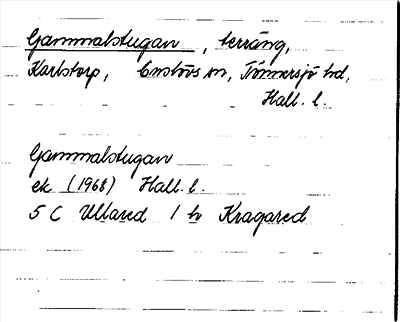 Gammalstugan, terräng,
Karlstorp, Enslövs sn, Tönnersjö hd,
Hall. l.
Gammalstugan
ek (1968) Hall. l.
5 C Ullared 1 h Kragared